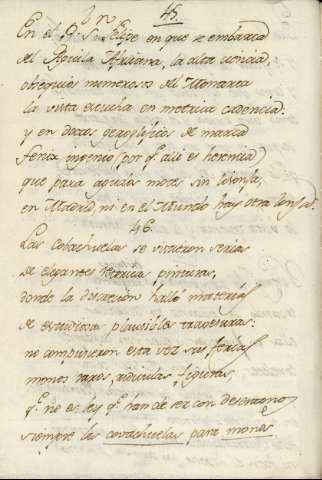 45.
En el Rl. Sn. Felipe en que se embarca
del Aguila Africana, la alta ciencia,
obsequios numerosos del Monarca
la vista escucha en metrica cadencia:
y en doctos geroglificos de marca
feria ingenio (por q.e alli es herencia)
que para agudos motes sin lisonja,
en Madrid, ni en el Mundo hay otra lonja.
46.
Las Covachuelas se vistieron serias
de elegantes pinturas,
donde la discrecion halló materias
de estudiosas plausibles travesuras:
no compusieron esta vez sus ferias
monos raros, ridiculas figuras,
q.e no es ley q.e han de ser con desentono
siempre las covachuelas para monos